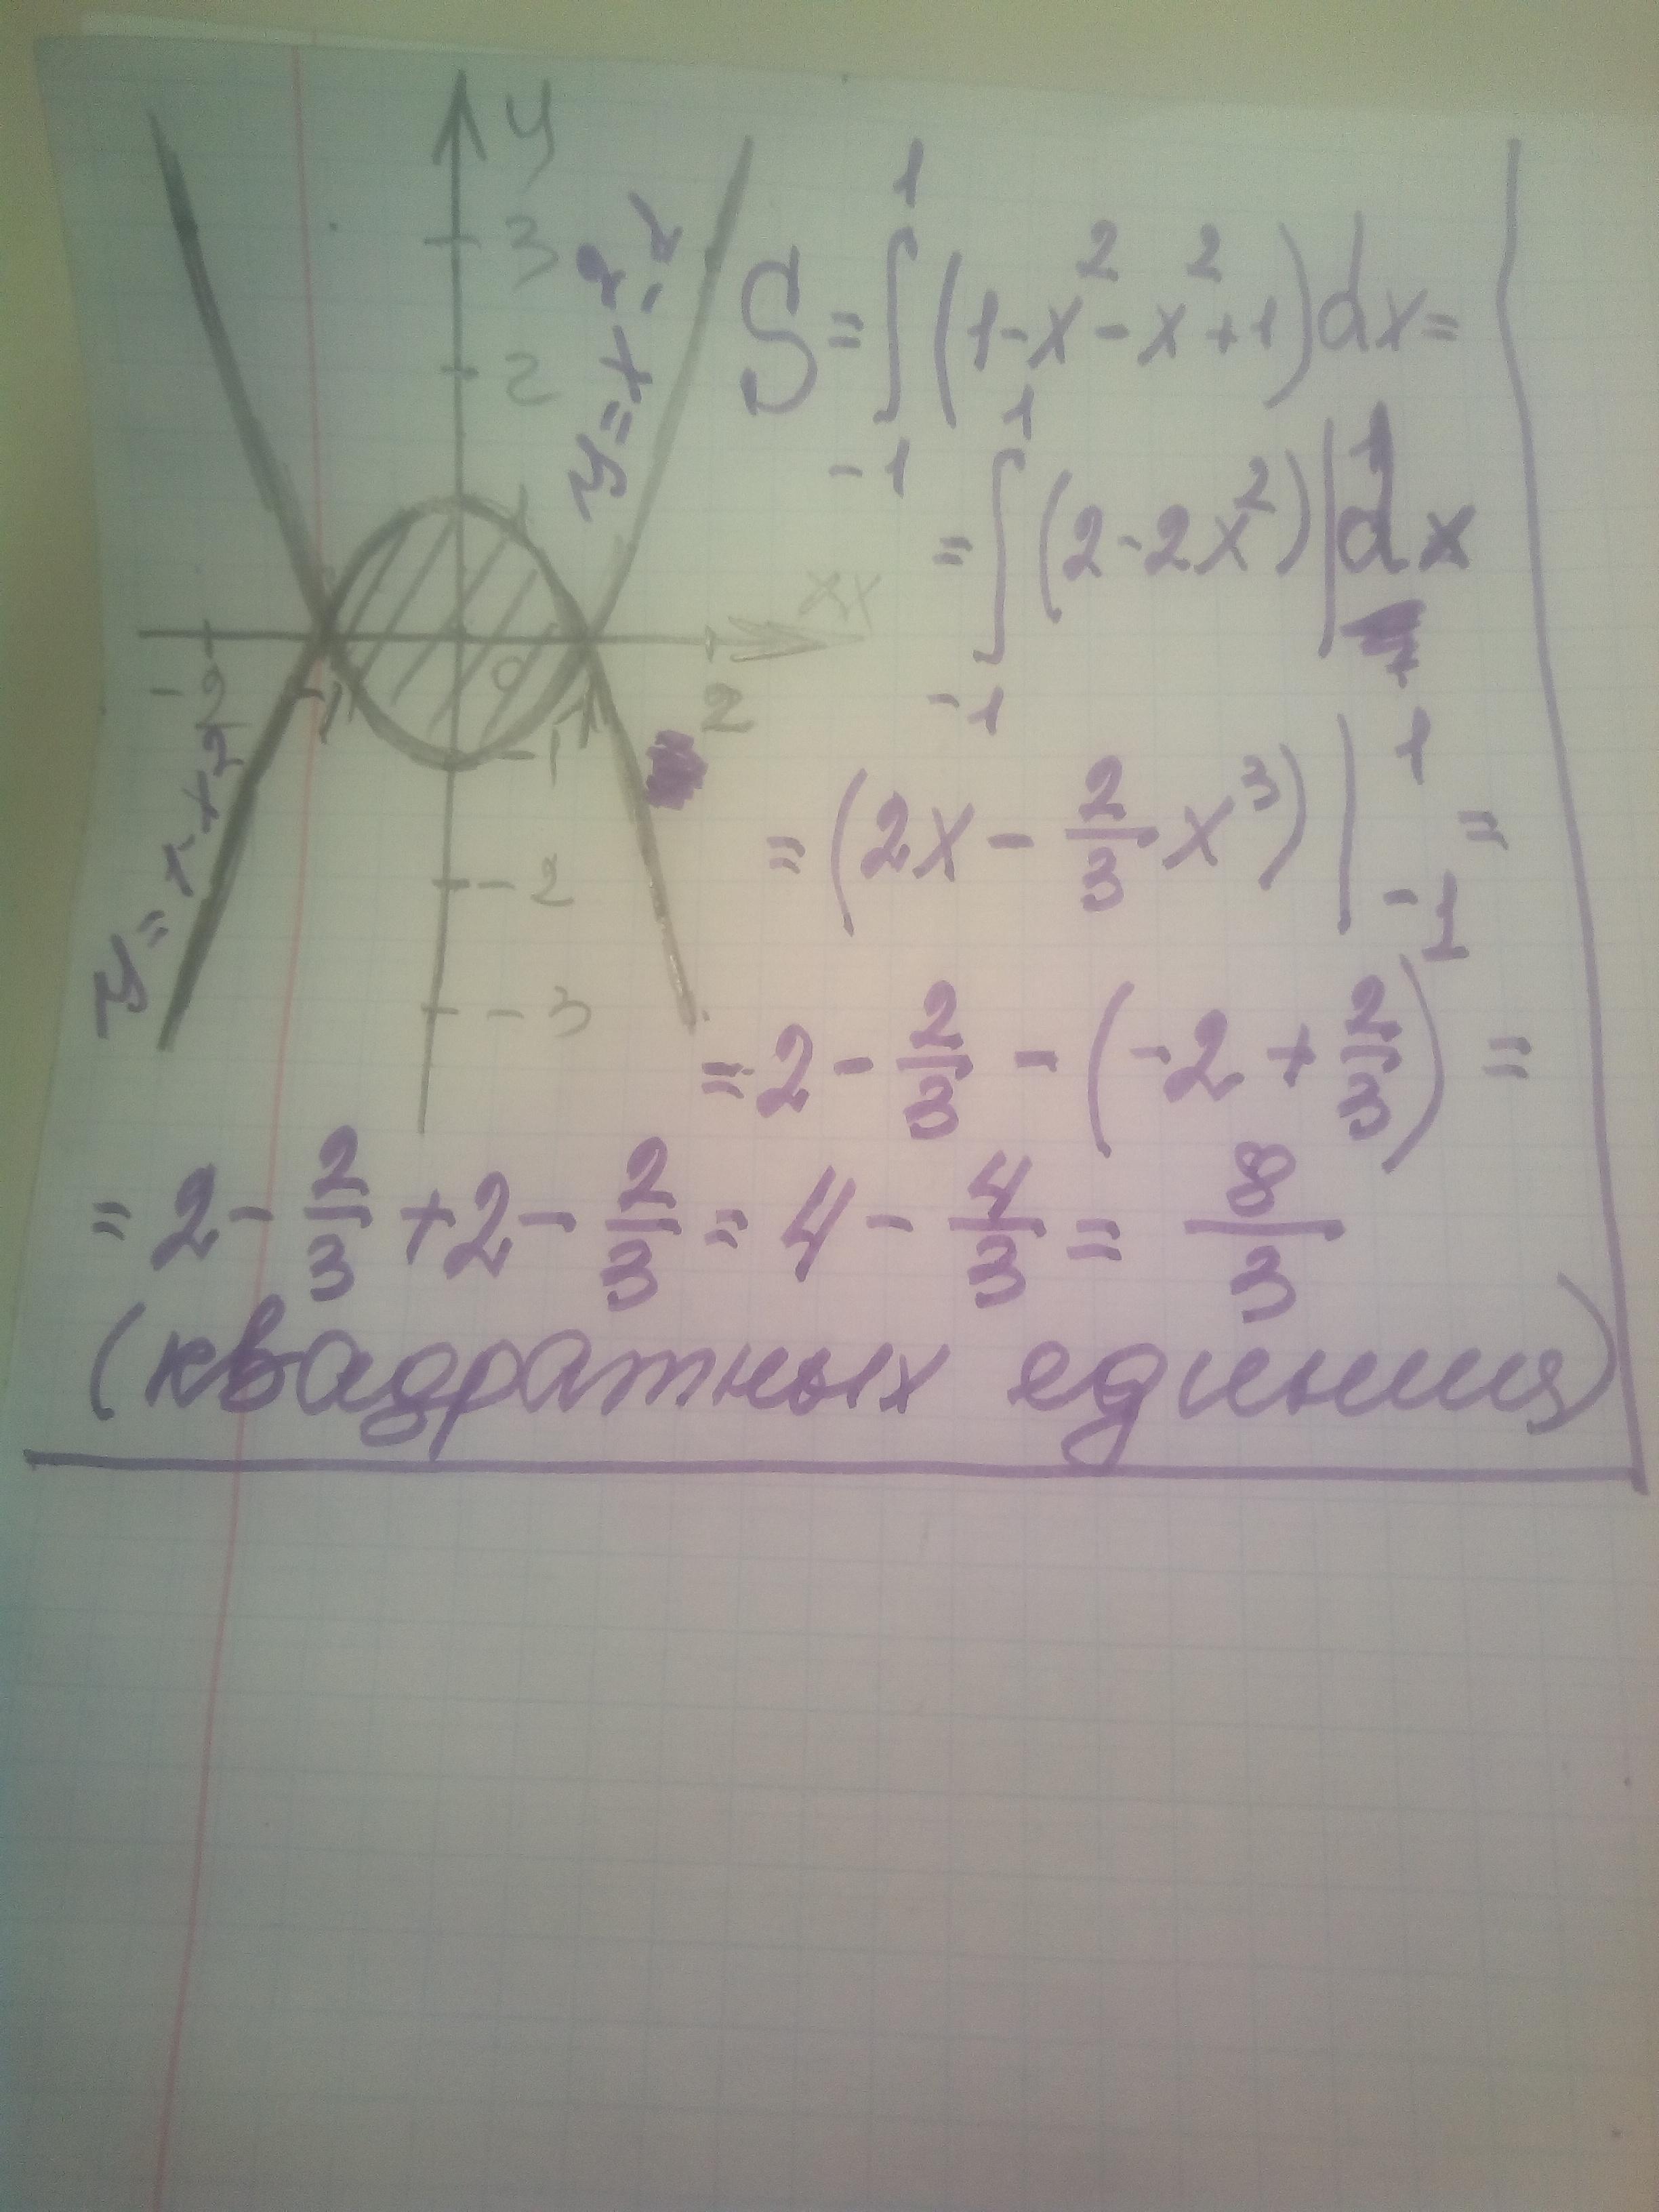 y
3
2
1
y = x² - 1
xx
-2
-1
0
1
2
-1
-2
-3
y = 1 - x²
S = ∫₋₁¹ (1 - x² - x² + 1) dx =
= ∫₋₁¹ (2 - 2x²) | dx
= (2x - 2/3 x³) |₋₁¹ =
= 2 - 2/3 - (-2 + 2/3) =
= 2 - 2/3 + 2 - 2/3 = 4 - 4/3 = 8/3
(квадратных единиц)